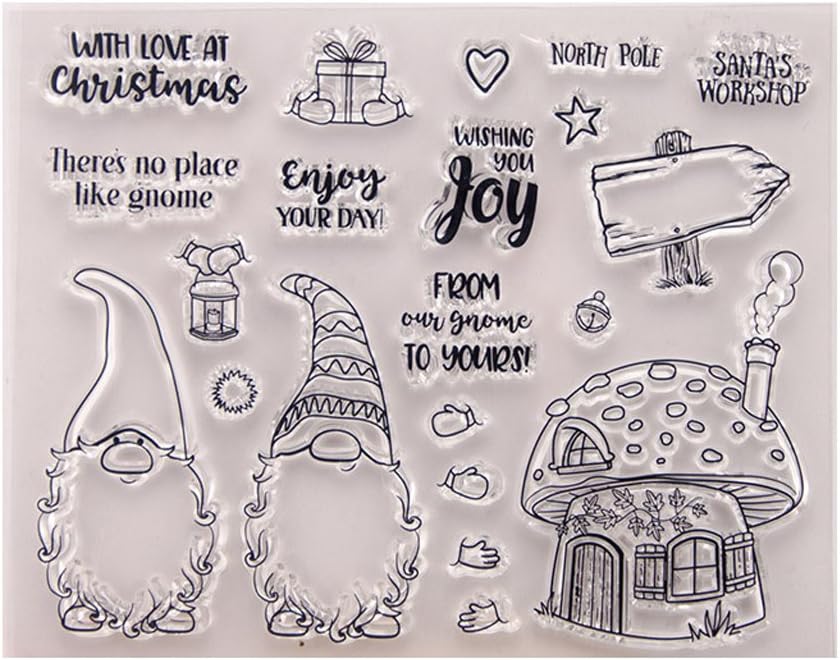 WITH LOVE AT
Christmas
NORTH POLE
SANTA'S
WORKSHOP
There's no place
like gnome
Enjoy
YOUR DAY!
WISHING
YOU
Joy
FROM
our gnome
TO YOURS!